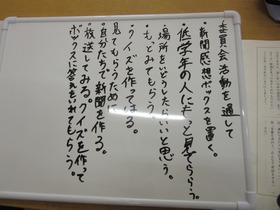 委員会活動を通して
・新聞感想ボックスを置く。
・低学年の人にもっと見てもらう。
場所をいどうしたらいいと思う。
もっとみてもらう。
・クイズを作ってはる。
見てもらうために
・自分たちで新聞を作る。
・放送してみる。クイズを作って
ボックスに答えをいれてもらう。